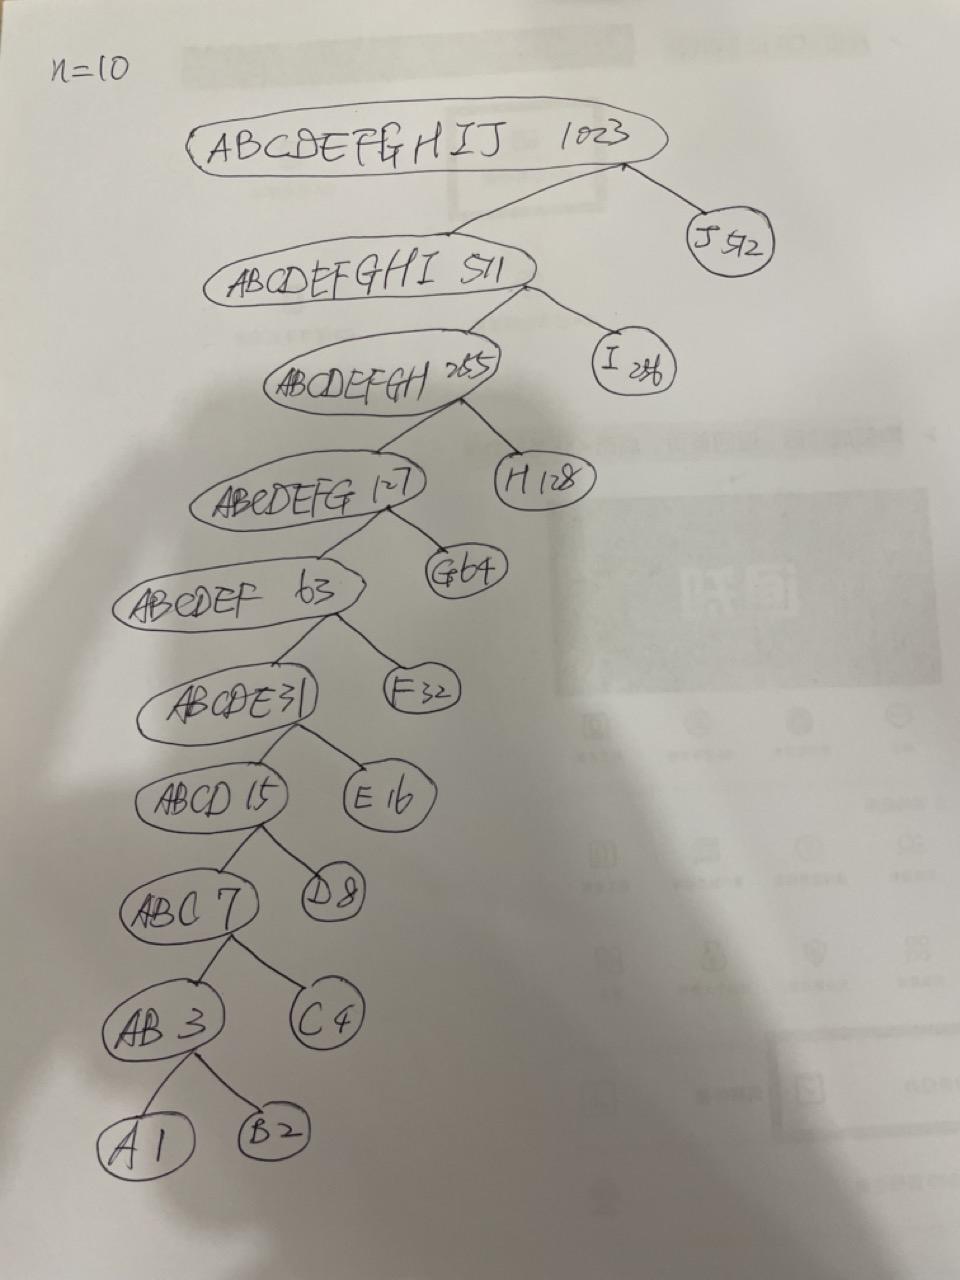 n=10
ABCDEFGHIJ 1023
J 512
ABCDEFGHI 511
I 256
ABCDEFGH 255
H 128
ABCDEFG 127
G 64
ABCDEF 63
F 32
ABCDE 31
E 16
ABCD 15
D 8
ABC 7
C 4
AB 3
A 1
B 2